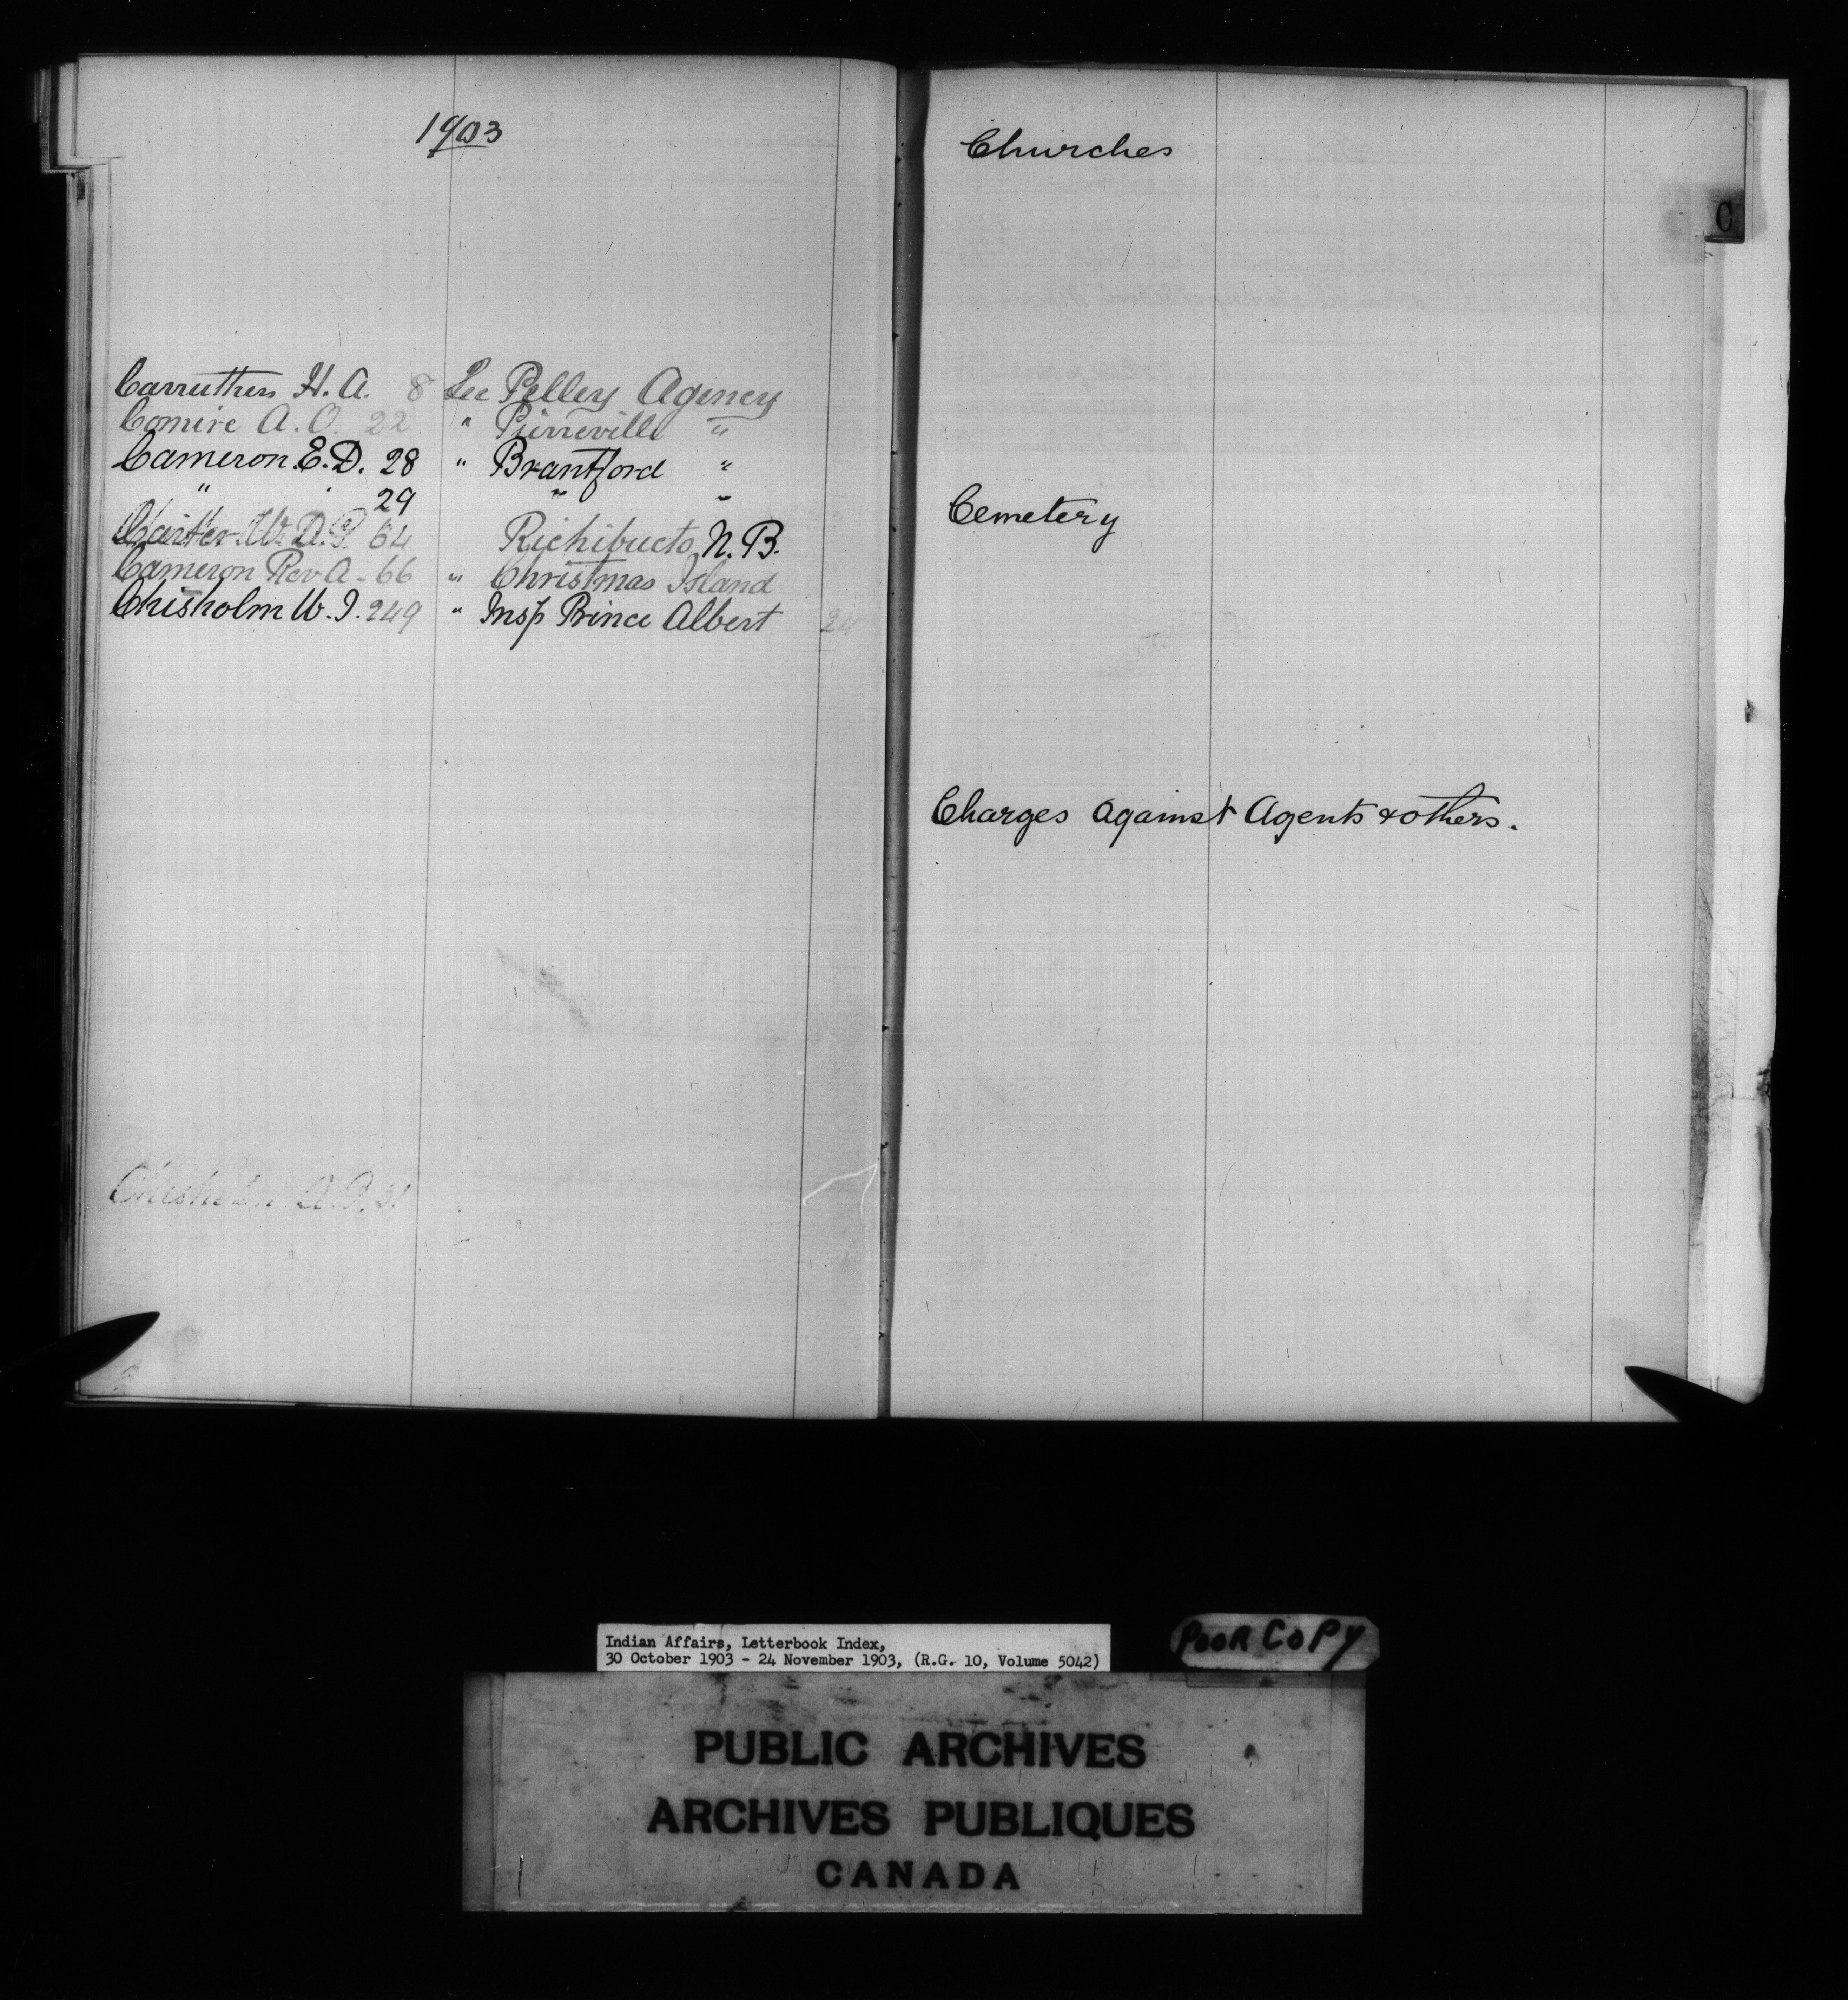 1903
Carruthers H. A. 8 See Pelley Agency
Comire A. O. 22 " Pierreville "
Cameron E. D. 28 " Brantford "
" 29 " "
Carter W. D. 64 Richibucto N. B.
Cameron Rev A - 66 " Christmas Island
Chisholm W. J. 249 " Insp Prince Albert 24
Chisholm A. 31
Churches
C
Cemetery
Charges against Agents & others.
Indian Affairs, Letterbook Index,
30 October 1903 - 24 November 1903, (R.G. 10, Volume 5042)
POOR COPY
PUBLIC ARCHIVES
ARCHIVES PUBLIQUES
CANADA